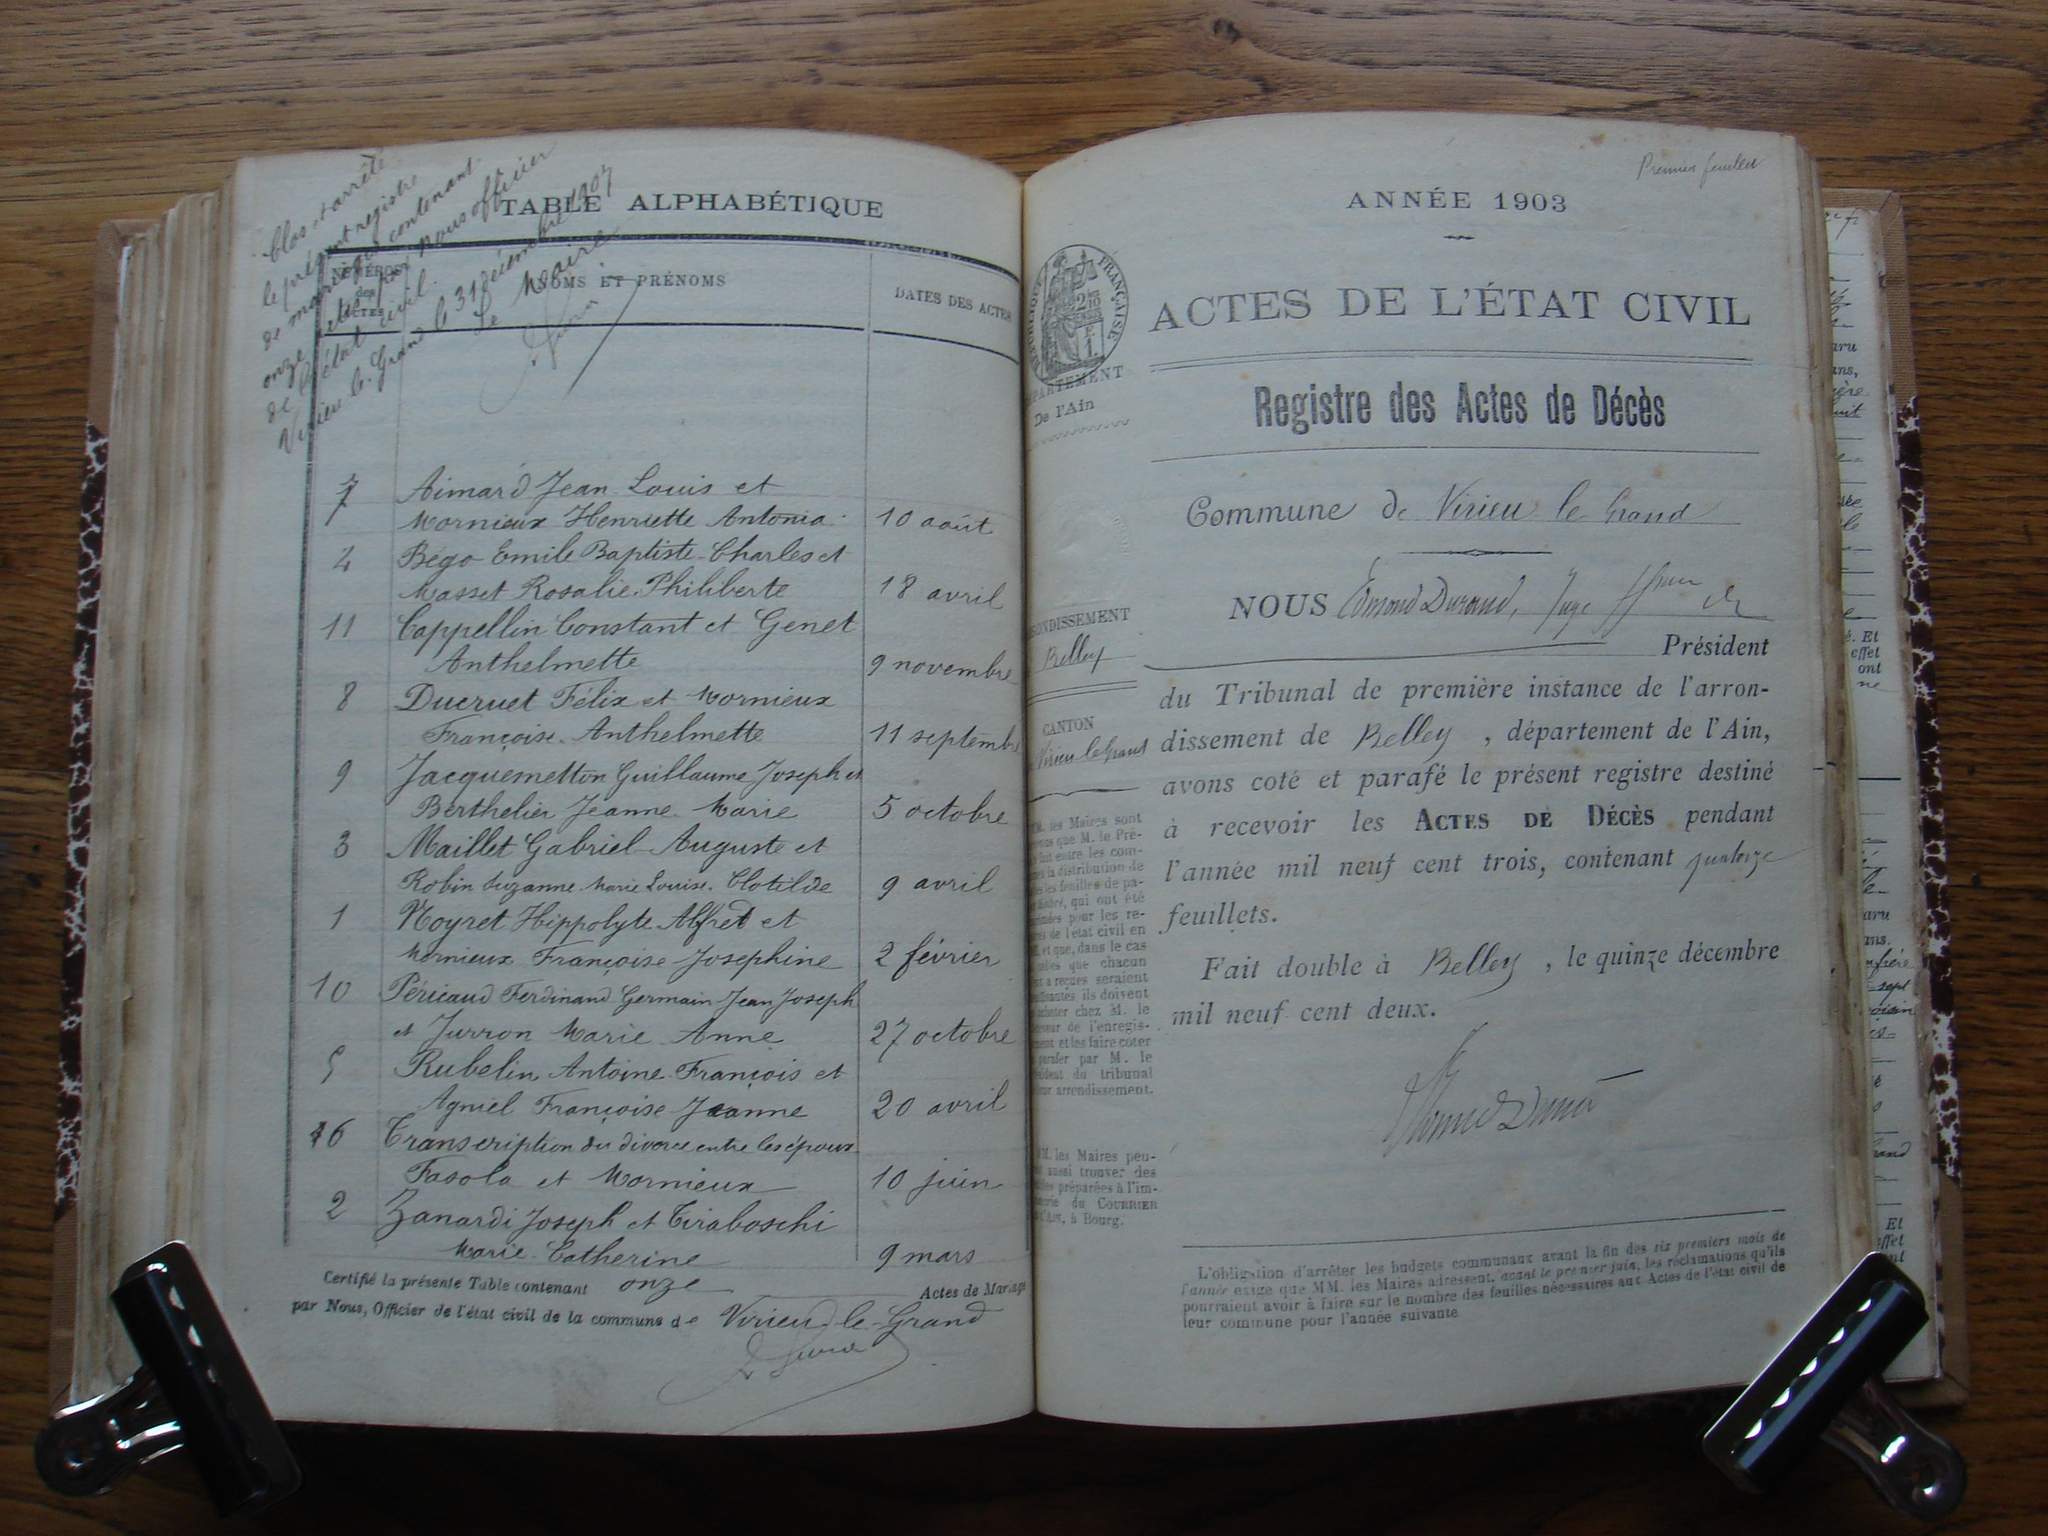 Clos et arrêté
le présent registre
de mariages contenant
onze actes par nous officier
de l'état civil.
Virieu-le-Grand le 31 décembre 1907
Le Maire
TABLE ALPHABÉTIQUE
NUMÉROS
des
ACTES
NOMS ET PRÉNOMS
DATES DES ACTES
7 Aimard Jean Louis et
Mornieux Henriette Antonia 10 août
4 Bégo Emile Baptiste Charles et
Masset Rosalie Philiberte 18 avril
11 Cappellin Constant et Genet
Anthelmette 9 novembre
8 Ducruet Félix et Mornieux
Françoise Anthelmette 11 septembre
9 Jacquemetton Guillaume Joseph et
Berthelier Jeanne Marie 5 octobre
3 Maillet Gabriel Auguste et
Robin Suzanne Marie Louise Clotilde 9 avril
1 Moyret Hippolyte Alfred et
Mornieux Françoise Josephine 2 février
10 Péricaud Ferdinand Germain Jean Joseph
et Jurron Marie Anne 27 octobre
5 Rubelin Antoine François et
Agniel Françoise Jeanne 20 avril
6 Transcription du divorce entre les époux
Fasola et Mornieux 10 juin
2 Zanardi Joseph et Tiraboschi
Marie Catherine 9 mars
Certifié la présente Table contenant onze Actes de Mariage
par Nous, Officier de l'état civil de la commune de Virieu-le-Grand
Premier feuillet
ANNÉE 1903
RÉPUBLIQUE FRANÇAISE
DÉPARTEMENT
De l'Ain
ACTES DE L'ÉTAT CIVIL
Registre des Actes de Décès
Commune de Virieu le Grand
NOUS Edmond Durand, Juge
Président
du Tribunal de première instance de l'arron-
dissement de Belley, département de l'Ain,
avons coté et parafé le présent registre destiné
à recevoir les ACTES DE DÉCÈS pendant
l'année mil neuf cent trois, contenant quatorze
feuillets.
Fait double à Belley, le quinze décembre
mil neuf cent deux.
Edmond Durand
L'obligation d'arrêter les budgets communaux avant la fin des six premiers mois de
l'année exige que MM. les Maires adressent, avant le premier juin, les réclamations qu'ils
pourraient avoir à faire sur le nombre des feuilles nécessaires aux Actes de l'état civil de
leur commune pour l'année suivante
ONDISSEMENT
Belley
CANTON
Virieu le Grand
MM. les Maires sont
que M. le Pré-
fait entre les com-
la distribution de
les feuilles de pa-
, qui ont été
pour les re-
de l'état civil en
et que, dans le cas
que chacun
reçues seraient
ils doivent
acheter chez M. le
de l'enregis-
et les faire coter
parafer par M. le
du tribunal
arrondissement.
MM. les Maires peu-
aussi trouver des
préparées à l'im-
du COURRIER
L'AIN, à Bourg.